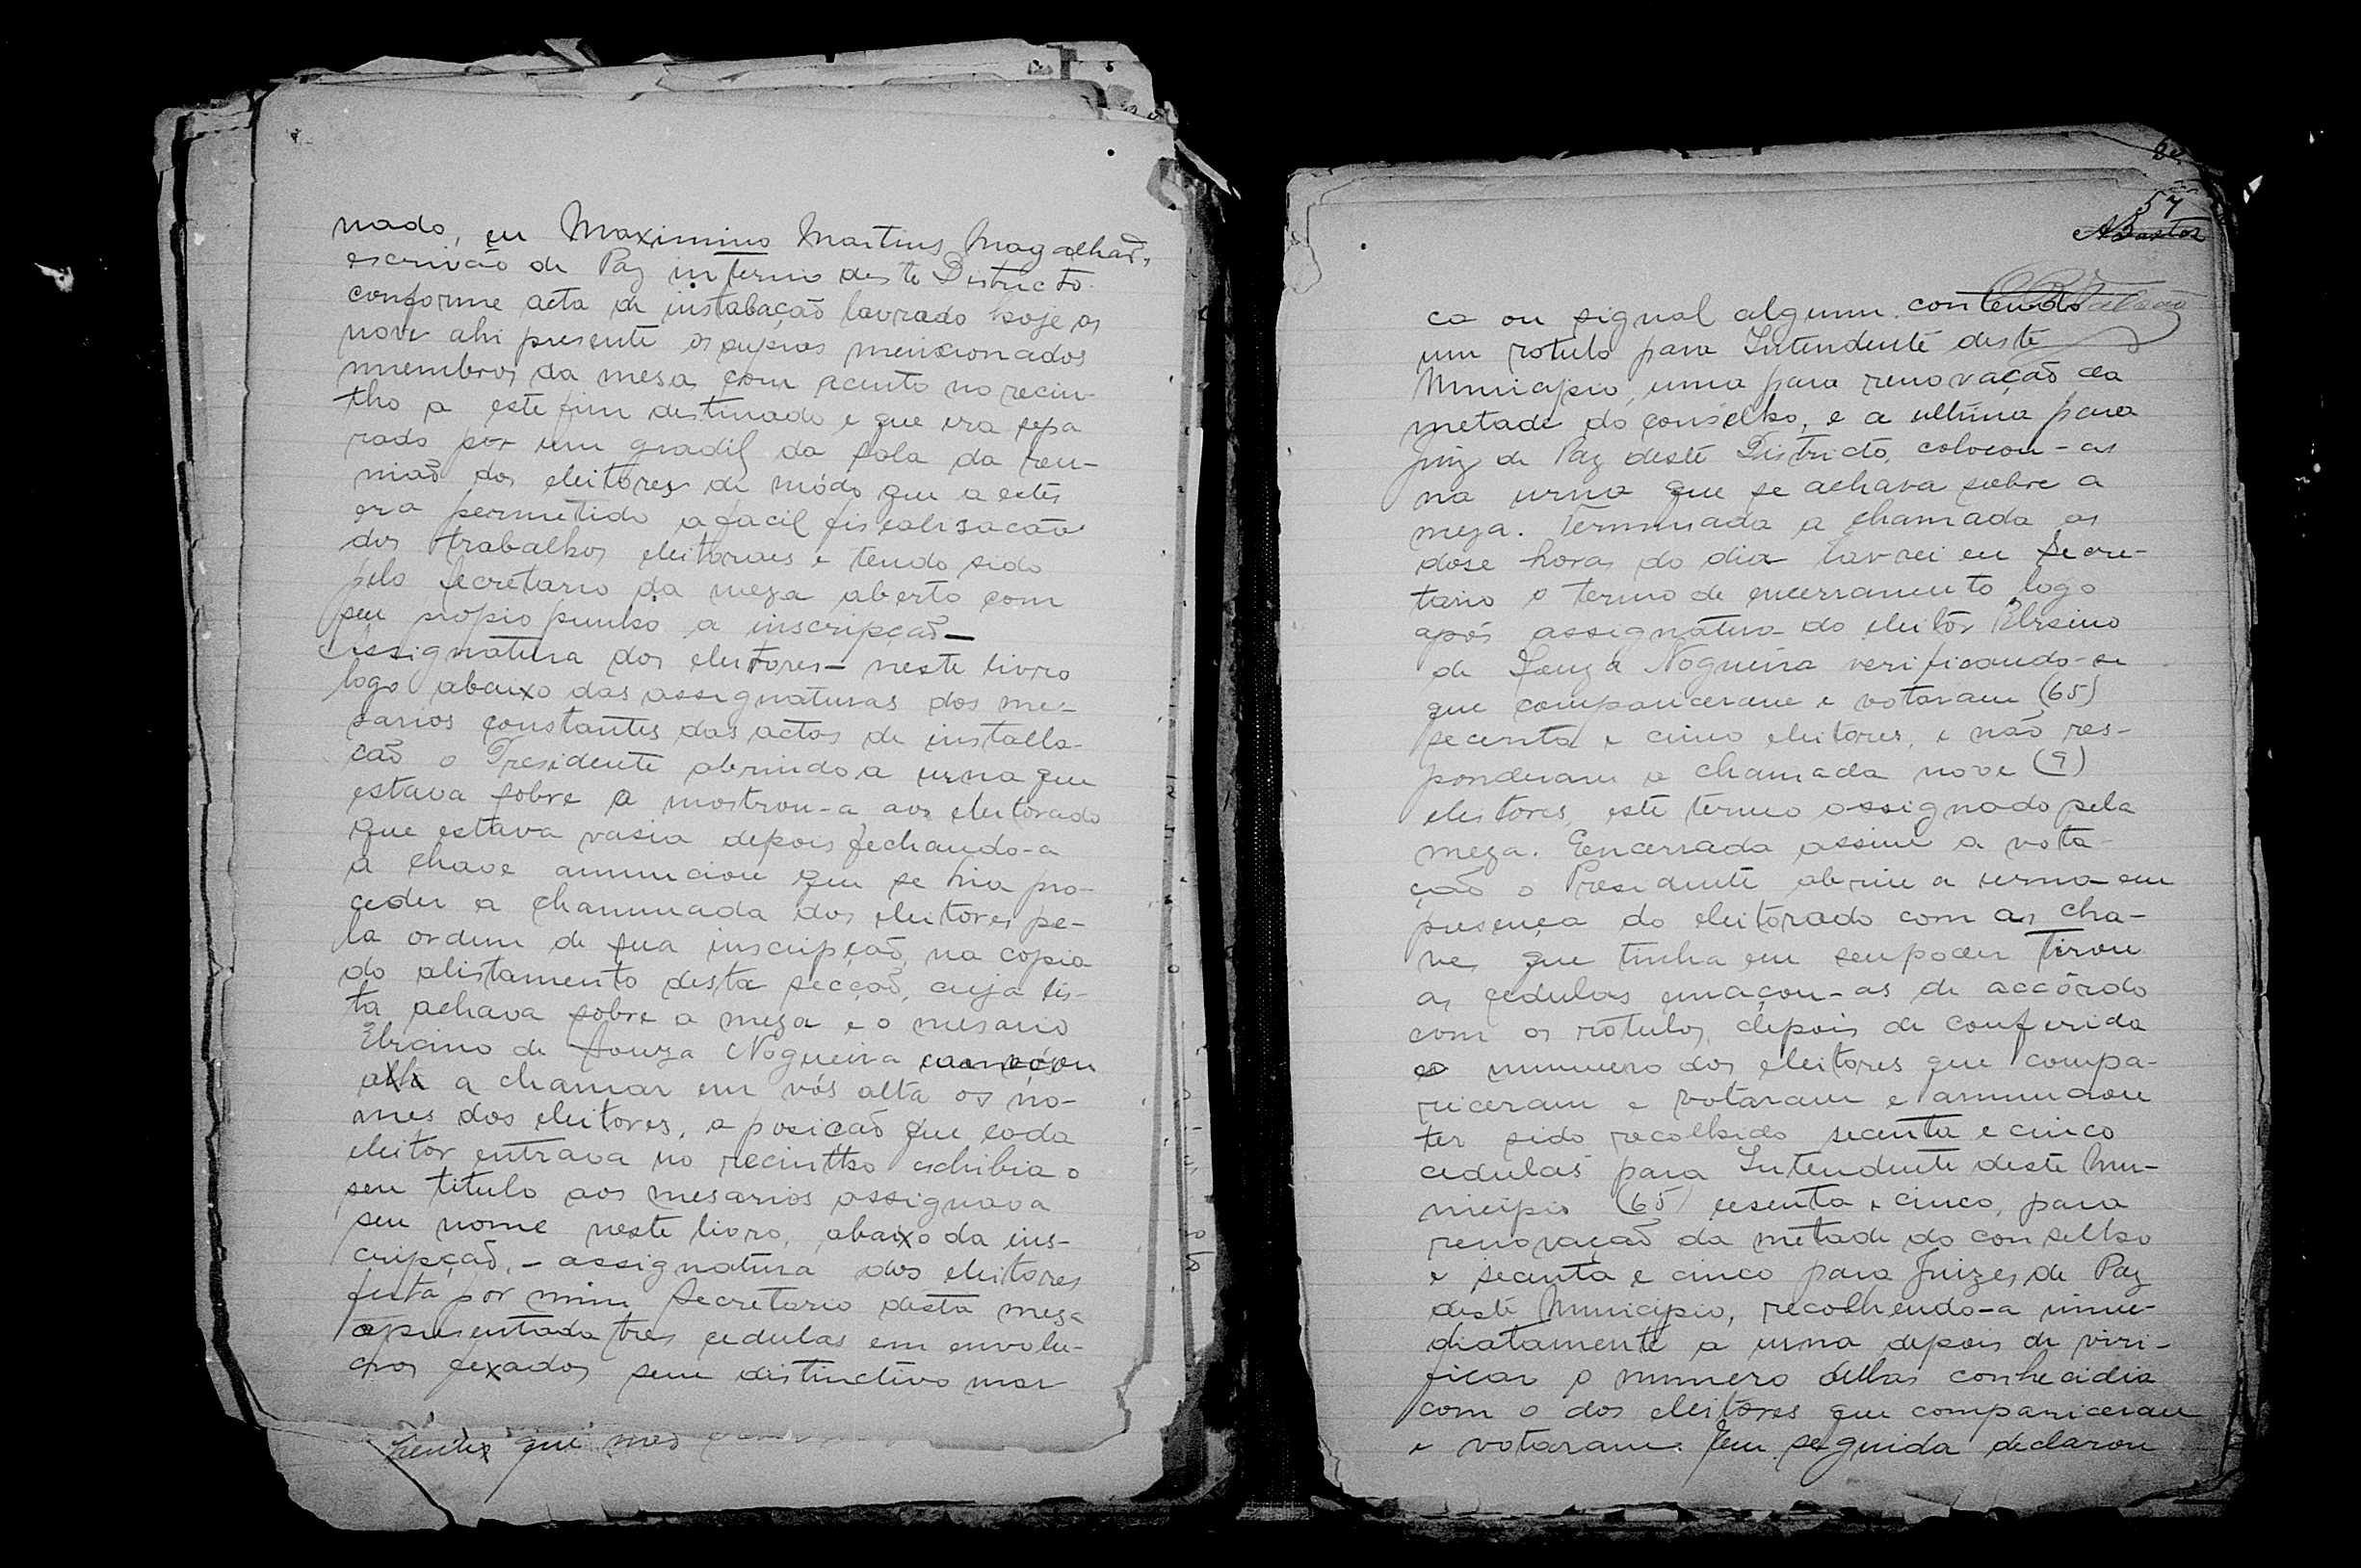 nado, eu Maximino Martins Magalhãs,
escrivão de Paz interno deste Districto.
conforme acta de instabação lavrado hoje as
nove ahi presente os supras mencionados
mnembros da mesa com acento no recin-
tho a este fim destinado e que era sepa
rado por um gradil da sala da reu-
nião dos eleitores de módo que a estes
era permetido a facil fiscalisacão
dos trabalhos eleitoraes e tendo sido
pelo secretario da meza aberto com
seu propio punho a inscripção —
Assignatura dos eleitores — neste livro
logo abaixo das assignaturas dos me-
sarios constantes das actas de installa-
cão o Presidente abrindo a urna que
estava sobre a mostrou-a aos eleitorado
que estava vasia depois fechando-a
a chave annunciou que se hia pro-
ceder a chammada dos eleitores pe-
la ordem de sua inscripção na copia
do alistamento desta secção, cuja lis-
ta achava sobre a meza e o mesario
Elrcino de Souza Nogueira começou
alta a chamar em vós alta os no-
mes dos eleitores, a posicão que cada
eleitor entrava no recintho exhibia o
seu titulo aos mesarios assignava
seu nome neste livro, abaixo da ins-
cripção, - assignatura dos eleitores
feita por mim Secretario desta meza
apresentada tres cedulas em envolu-
cros fexados sem distinctivo mar
que mes
57
ABastos
ca ou signal algum contendo
um rotulo para Intendente deste
Municipio, uma para renovação da
metade do conselho, e a ultima para
Juiz de Paz deste Districto, colocou-as
na urna que se achava sobre a
meza. Terminada a chamada as
dose horas do dia lavrei eu Secre-
tario o termo de encerramento logo
após assignatura do eleitor Elrsino
de Souza Nogueira verificando-se
que compariceram e votaram (65)
secenta e cinco eleitores, e não res-
ponderam a chamada nove (9)
eleitores, este termo assignado pela
meza. Eencerrada assim a vota-
ção o Presidente abriu a urna em
presença do eleitorado com as cha-
ves que tinha em seu poder tirou
as cedulas emaçou-as de accôrdo
com os rotulos, depois de conferida
o nummero dos eleitores que compa-
riceram e votaram e annunciou
ter sido recolhido secenta e cinco
cedulas para Intendente deste Mu-
nicipio (65) cesenta e cinco, para
renovação da metade do conselho
e secenta e cinco para Juizes de Paz
deste Municipio, recolhendo-a imme-
diatamente a urna depois de viri-
ficar o numero dellas conhecidia
com o dos eleitores que compariceram
e votaram. Em seguida declarou